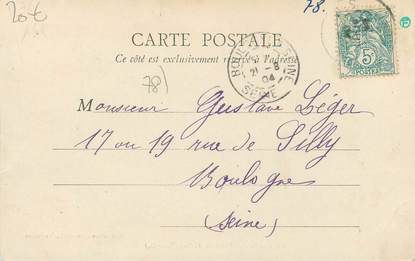 20€
78.
CARTE POSTALE
Ce côté est exclusivement réservé à l'adresse
BOULOGNE SEINE
21 - 8
04
SEINE
5
POSTES
78
Monsieur Gustave Léger
17 ou 19 rue de Silly
Boulogne
(Seine)